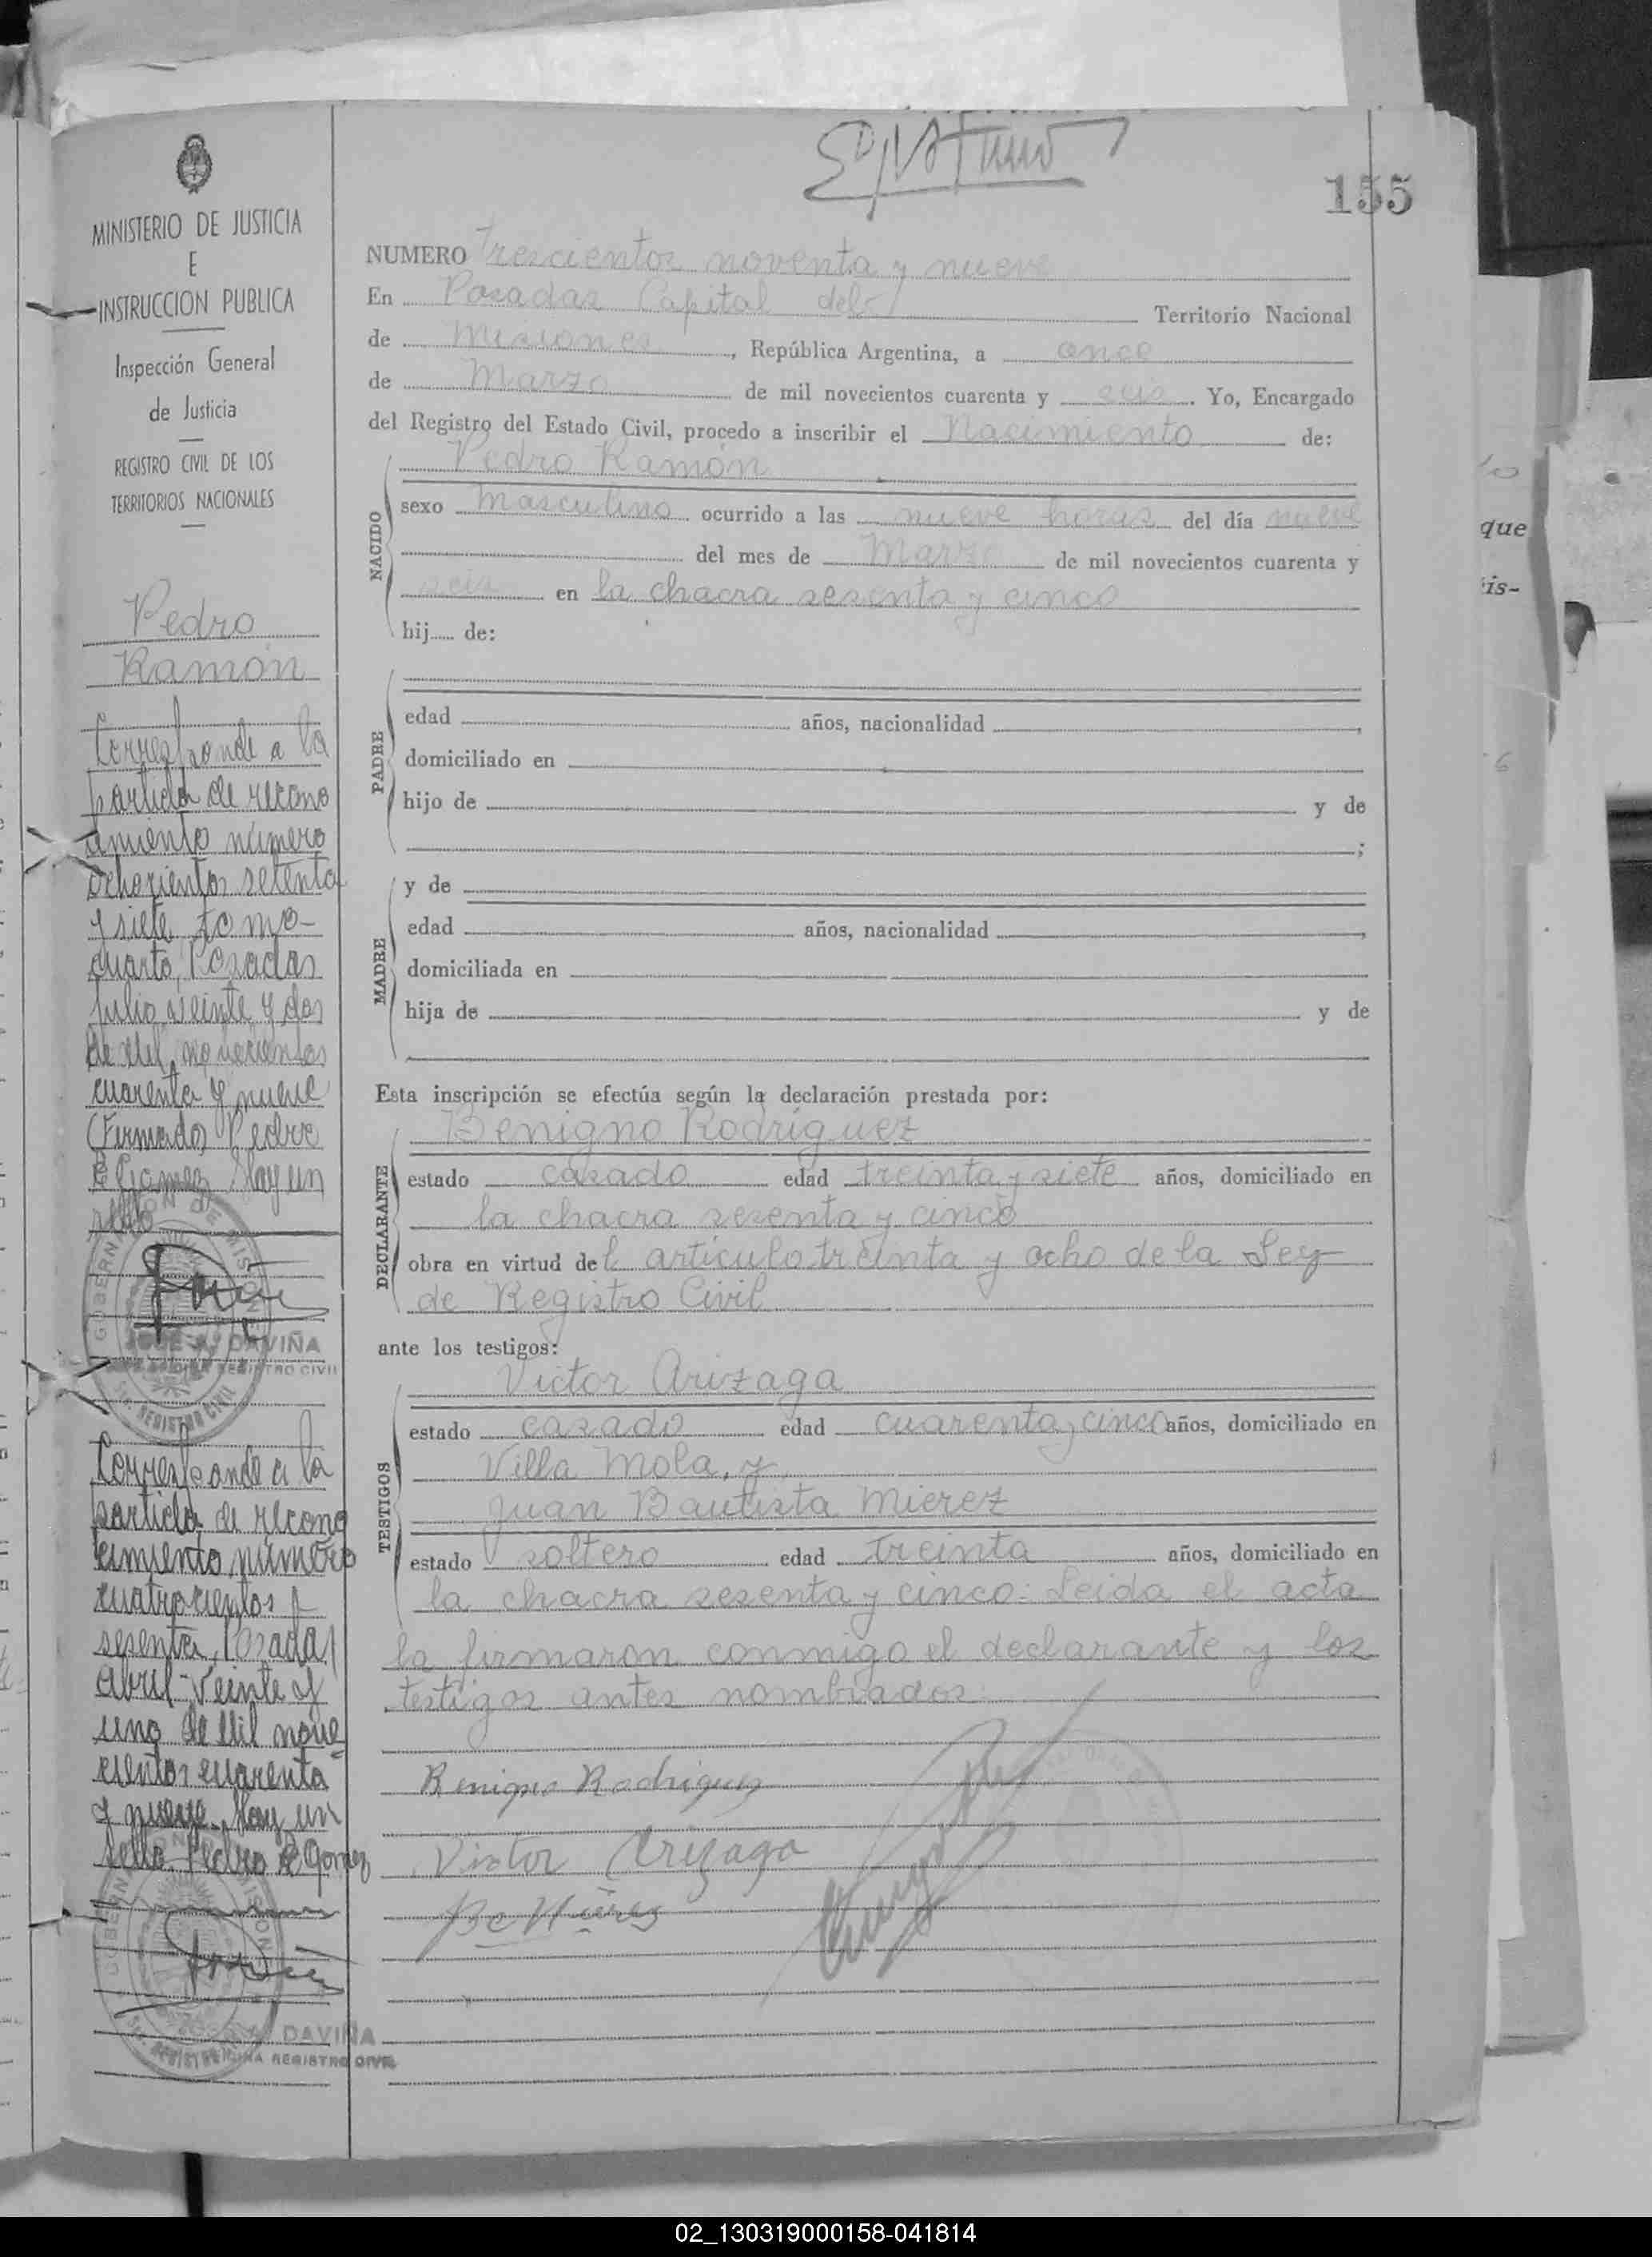 155
MINISTERIO DE JUSTICIA
E
INSTRUCCION PUBLICA
Inspección General
de Justicia
REGISTRO CIVIL DE LOS
TERRITORIOS NACIONALES
Pedro
Ramón
Corresponde a la
partida de recono
cimiento número
ochocientos setenta
y siete tomo
cuarto, Posadas
Julio veinte y dos
de mil novecientos
cuarenta y nueve
(Firmado) Pedro
R Gomez Hay un
sello
GOBERNACION DE MISIONES
DAVIÑA
REGISTRO CIVIL
Corresponde a la
partida de recono
cimiento número
cuatrocientos
sesenta, Posadas
Abril veinte y
uno de Mil nove
cientos cuarenta
y nueve. Hay un
sello. Pedro R Gomez
DAVIÑA
REGISTRO CIVIL
NUMERO trescientos noventa y nueve
En Posadas Capital del Territorio Nacional
de Misiones, República Argentina, a once
de Marzo de mil novecientos cuarenta y seis. Yo, Encargado
del Registro del Estado Civil, procedo a inscribir el Nacimiento de:
NACIDO
Pedro Ramón
sexo Masculino ocurrido a las nueve horas del día nueve
del mes de Marzo de mil novecientos cuarenta y
seis en la chacra sesenta y cinco
hij..... de:
PADRE
edad años, nacionalidad ,
domiciliado en
hijo de y de
;
MADRE
y de
edad años, nacionalidad ,
domiciliada en
hija de y de
Esta inscripción se efectúa según la declaración prestada por:
DECLARANTE
Benigno Rodríguez
estado casado edad treinta y siete años, domiciliado en
la chacra sesenta y cinco
obra en virtud del artículo treinta y ocho de la Ley
de Registro Civil
ante los testigos:
TESTIGOS
Victor Arizaga
estado casado edad cuarenta y cinco años, domiciliado en
Villa Mola, y
Juan Bautista Mierez
estado soltero edad treinta años, domiciliado en
la chacra sesenta y cinco: Leida el acta
la firmaron conmigo el declarante y los
testigos antes nombrados.
Benigno Rodriguez
Victor Arizaga
que
is-
02_130319000158-041814